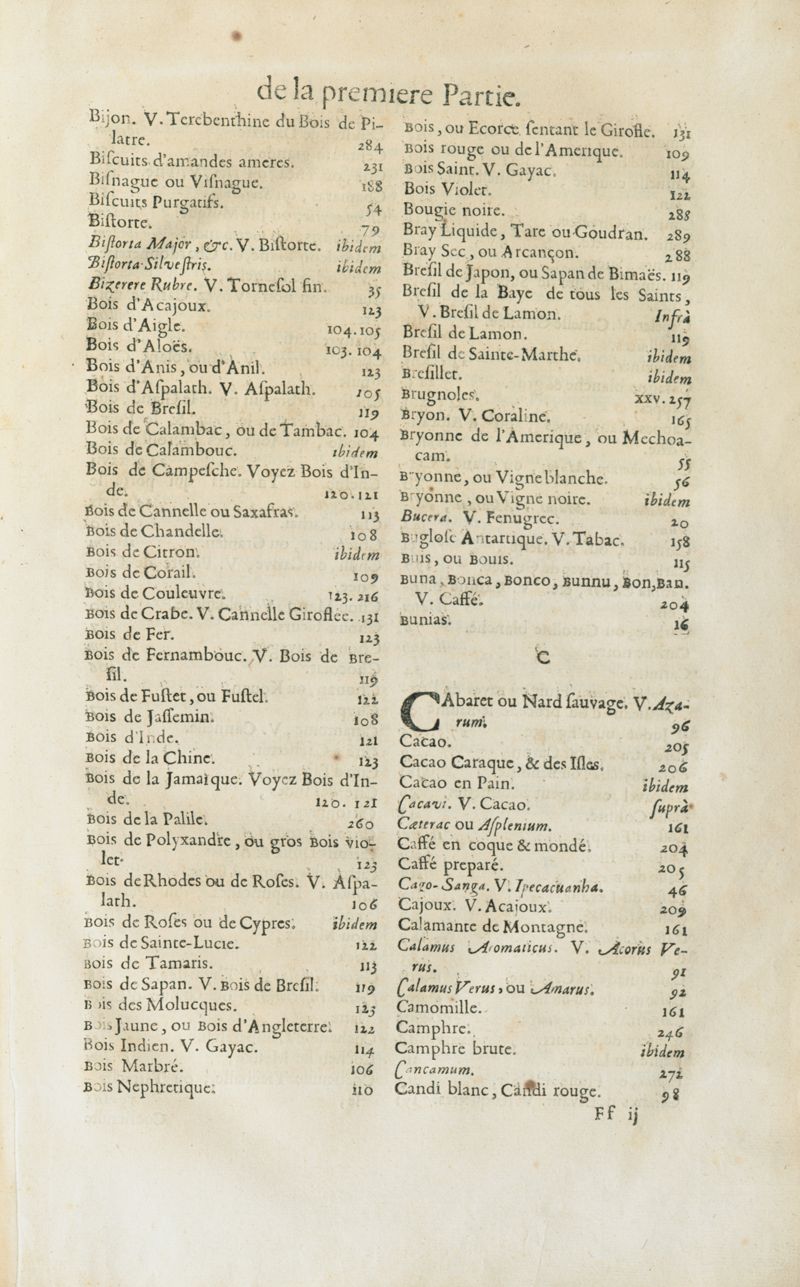 de la premiere Partie.
Bijon. V. Terebenthine du Bois de Pi-
latre. 284
Biſcuits d'amandes ameres. 231
Biſnague ou Viſnague. 188
Biſcuits Purgatifs. 54
Biſtorte. 79
Biſtorta Major, &c. V. Biſtorte. ibidem
Biſtorta Silveſtris. ibidem
Bizerere Rubre. V. Torneſol fin. 35
Bois d'Acajoux. 123
Bois d'Aigle. 104. 105
Bois d'Aloës. 103. 104
Bois d'Anis, ou d'Anil. 123
Bois d'Aſpalath. V. Aſpalath. 105
Bois de Breſil. 119
Bois de Calambac, ou de Tambac. 104
Bois de Calambouc. ibidem
Bois de Campeſche. Voyez Bois d'In-
de. 120. 121
Bois de Cannelle ou Saxafras. 113
Bois de Chandelle. 108
Bois de Citron. ibidem
Bois de Corail. 109
Bois de Couleuvre. 123. 216
Bois de Crabe. V. Cannelle Giroflée. 131
Bois de Fer. 123
Bois de Fernambouc. V. Bois de Bre-
ſil. 119
Bois de Fuſtet, ou Fuſtel. 122
Bois de Jaſſemin. 108
Bois d'Inde. 121
Bois de la Chine. 123
Bois de la Jamaïque. Voyez Bois d'In-
de. 120. 121
Bois de la Palile. 260
Bois de Polyxandre, ou gros Bois Vio-
let. 123
Bois de Rhodes ou de Roſes. V. Aſpa-
lath. 106
Bois de Roſes ou de Cypres. ibidem
Bois de Sainte-Lucie. 122
Bois de Tamaris. 113
Bois de Sapan. V. Bois de Breſil. 119
Bois des Molucques. 123
Bois Jaune, ou Bois d'Angleterre. 122
Bois Indien. V. Gayac. 114
Bois Marbré. 106
Bois Nephretique. 110
Bois, ou Ecorce ſentant le Girofle. 131
Bois rouge ou de l'Amerique. 109
Bois Saint. V. Gayac. 114
Bois Violet. 122
Bougie noire. 285
Bray Liquide, Tare ou Goudran. 289
Bray Sec, ou Arcançon. 288
Breſil de Japon, ou Sapan de Bimaës. 119
Breſil de la Baye de tous les Saints,
V. Breſil de Lamon. Infrà
Breſil de Lamon. 119
Breſil de Sainte-Marthe. ibidem
Breſillet. ibidem
Brugnoles. XXV. 257
Bryon. V. Coraline. 165
Bryonne de l'Amerique, ou Mechoa-
cam. 55
Bryonne, ou Vigne blanche. 56
Bryonne, ou Vigne noire. ibidem
Bucera. V. Fenugrec. 20
Bugloſe Antartique. V. Tabac. 158
Buis, ou Bouis. 115
Buna, Bonca, Bonco, Bunnu, Bon, Ban.
V. Caffé. 204
Bunias. 16
C
CAbaret ou Nard ſauvage. V. Aza-
rum. 96
Cacao. 205
Cacao Caraque, & des Iſles. 206
Cacao en Pain. ibidem
Cacavi. V. Cacao. ſuprà
Cæterac ou Aſplenium. 161
Caffé en coque & mondé. 204
Caffé preparé. 205
Cago-Sanga. V. Ipecacuanha. 46
Cajoux. V. Acajoux. 209
Calamante de Montagne. 161
Calamus Aromaticus. V. Acorus Ve-
rus. 91
Calamus Verus, ou Amarus. 92
Camomille. 161
Camphre. 246
Camphre brute. ibidem
Cancamum. 272
Candi blanc, Candi rouge. 98
Ff ij